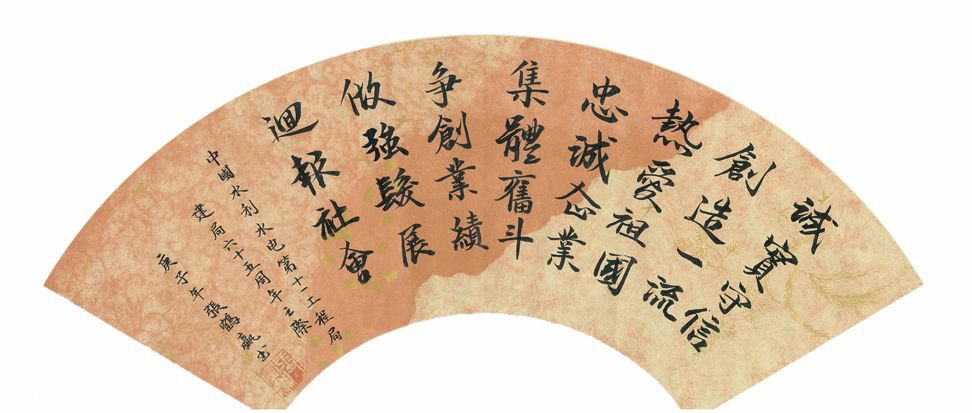 誠實守信
創造一流
熱愛祖國
忠誠企業
集體奮斗
争創業績
做強髮展
迴報社會
中國水利水电第十一工程局
建局六十五周年之際
庚子年張鶴贏书